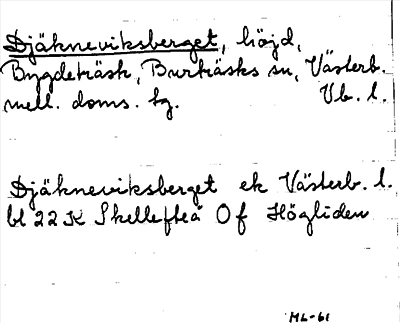 Djäkneviksberget, höjd,
Bygdeträsk, Burträsks sn, Västerb.
mell. doms. tg. Vb. l.
Djäkneviksberget ek Västerb. l.
bl 22 K Skellefteå Of Högliden
ML-61